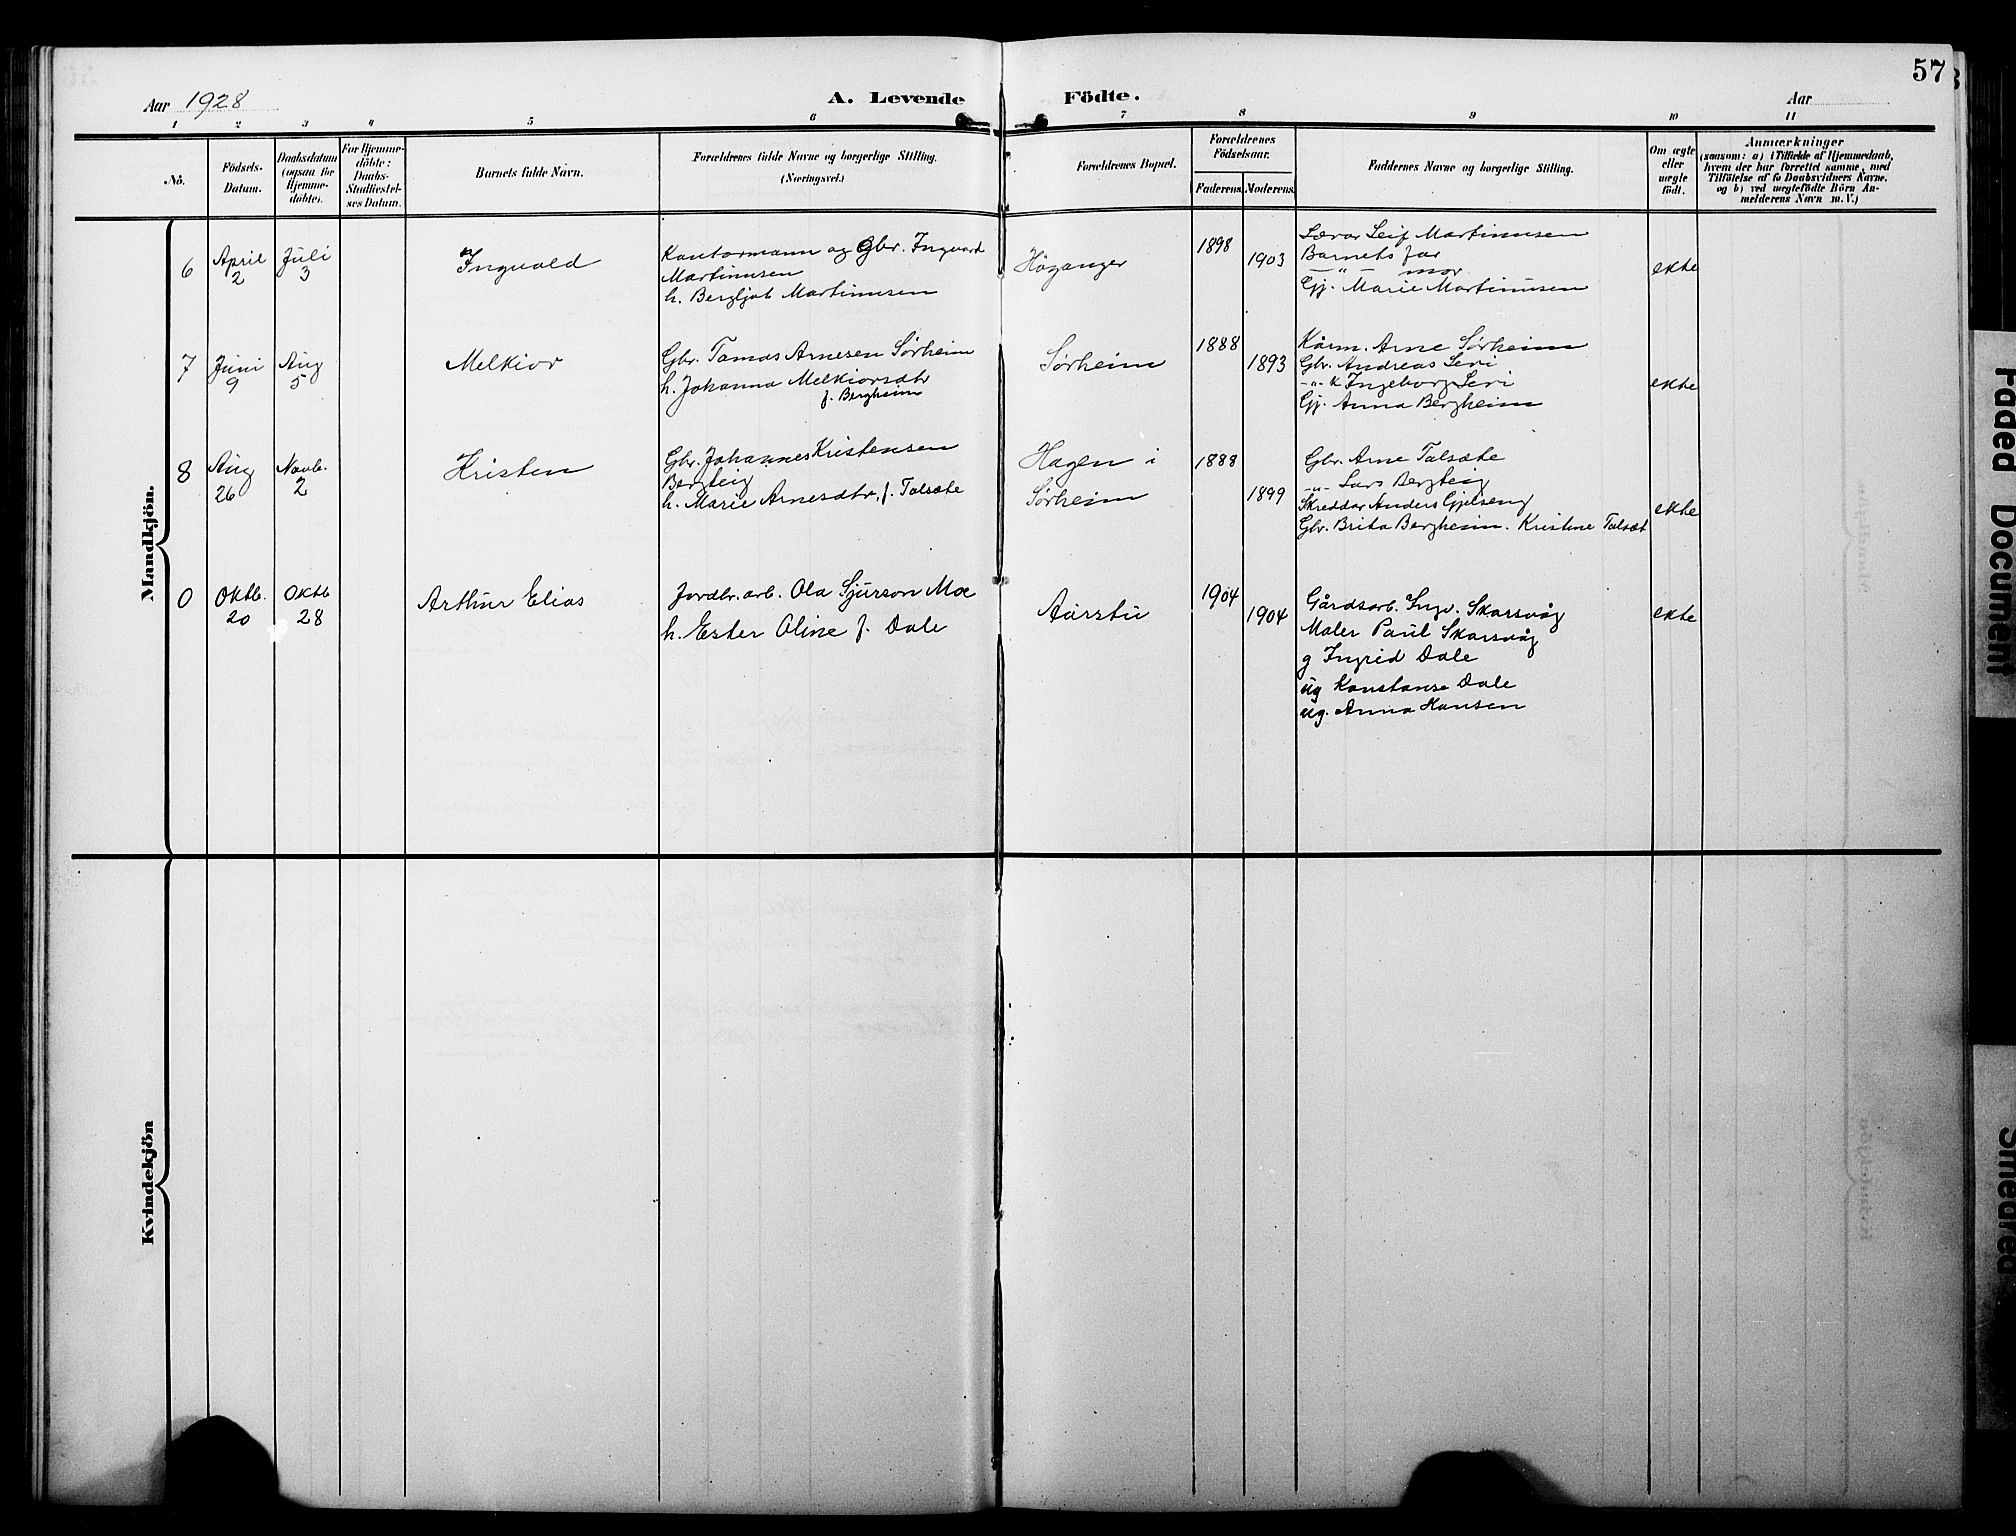 57
Aar 1928
A. Levende Födte.
Aar
1 2 3 4 5 6 7 8 9 10 11
No.
Födsels-
Datum.
Daabsdatum
(ogsaa for
Hjemme-
döbte).
For Hjemme-
döbte:
Daabs-
Stadfæstel-
ses Datum.
Barnets fulde Navn.
Forældrenes fulde Navne og borgerlige Stilling.
(Næringsvei.)
Forældrenes Bopæl.
Forældrenes
Födselsaar.
Faderens. Moderens.
Faddernes Navne og borgerlige Stilling.
Om ægte
eller
uægte
födt.
Anmærkninger
(saasom: a) i Tilfælde af Hjemmedaab,
hvem der har forrettet samme, med
Tilföielse af to Daabsvidners Navne,
og b) ved uægtefödte Börn An-
melderens Navn m. V.)
Mandkjön.
6
April
2
Juli
3
Ingvald
Kontormann og Gbr. Ingvard
Martinusen
h. Bergljot Martinusen
Höyanger
1898
1903
Lærar Leif Martinusen
Barnets far
—"— mor
Gj. Marie Martinusen
ekte
7
Juni
9
Aug
5
Melkior
Gbr. Tomas Arnesen Sørheim
h. Johanna Melkiorsdtr
f. Bergheim
Sørheim
1888
1893
Kårm. Arne Sørheim
Gbr. Andreas Leri
-"- k Ingeborg Leri
Gj. Anna Bergheim
ekte
8
Aug
26
Novb.
2
Kristen
Gbr. Johannes Kristensen
Bergteig
h. Marie Arnesdtr, f. Talsæte
Hagen i
Sørheim
1888
1899
Gbr. Arne Talsæte
-"- Lars Bergteig
Skreddar Anders Gjelseng
Gbr. Brita Bergheim. Kristine Talsæt
ekte
0
Oktb.
20
Oktb
28
Arthur Elias
Jordbr. arb. Ola Sjurson Moe
h. Ester Oline f. Dale
1904
1904
Gårdsarb. Ingv. Skarsvåg
Maler Paul Skarsvåg
g Ingrid Dale
ug Konstanse Dale
ug. Anna Hansen
ekte
Kvindekjön
Faded Document
Smeared